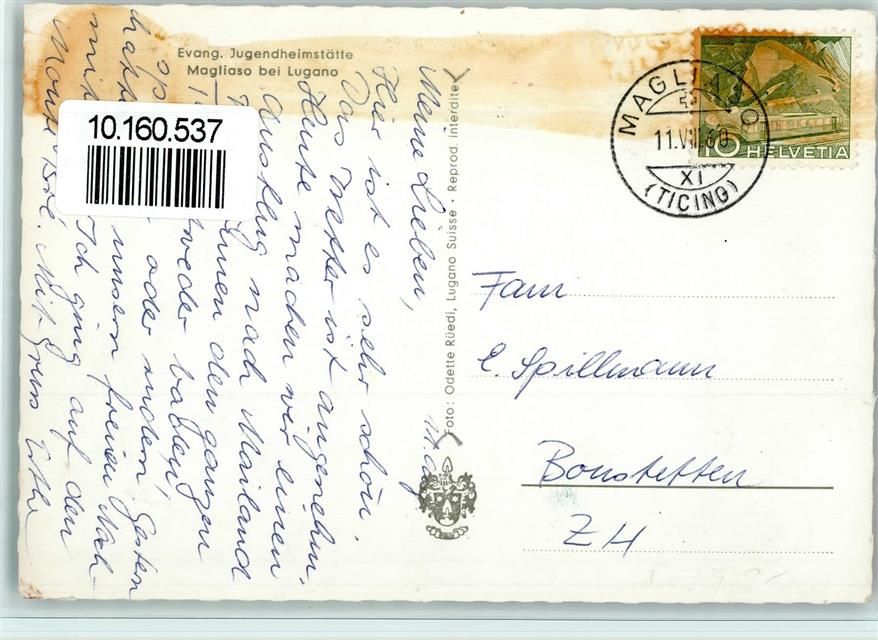 Evang. Jugendheimstätte
Magliaso bei Lugano
10.160.537
MAGLIASO
11.VIII.60
XI
(TICINO)
10 HELVETIA
Foto: Odette Rüedi, Lugano Suisse • Reprod. interdite
11. Aug.
Meine Lieben,
Hier ist es sehr schön.
Das Wetter ist angenehm.
Heute machen wir einen
Ausflug nach Mailand
den ganzen
baden,
oder rudern, Gestern
unsern freien Nach-
mit Ich ging auf den
Monte Mit Gruss
Fam
E. Spillmann
Bonstetten
ZH